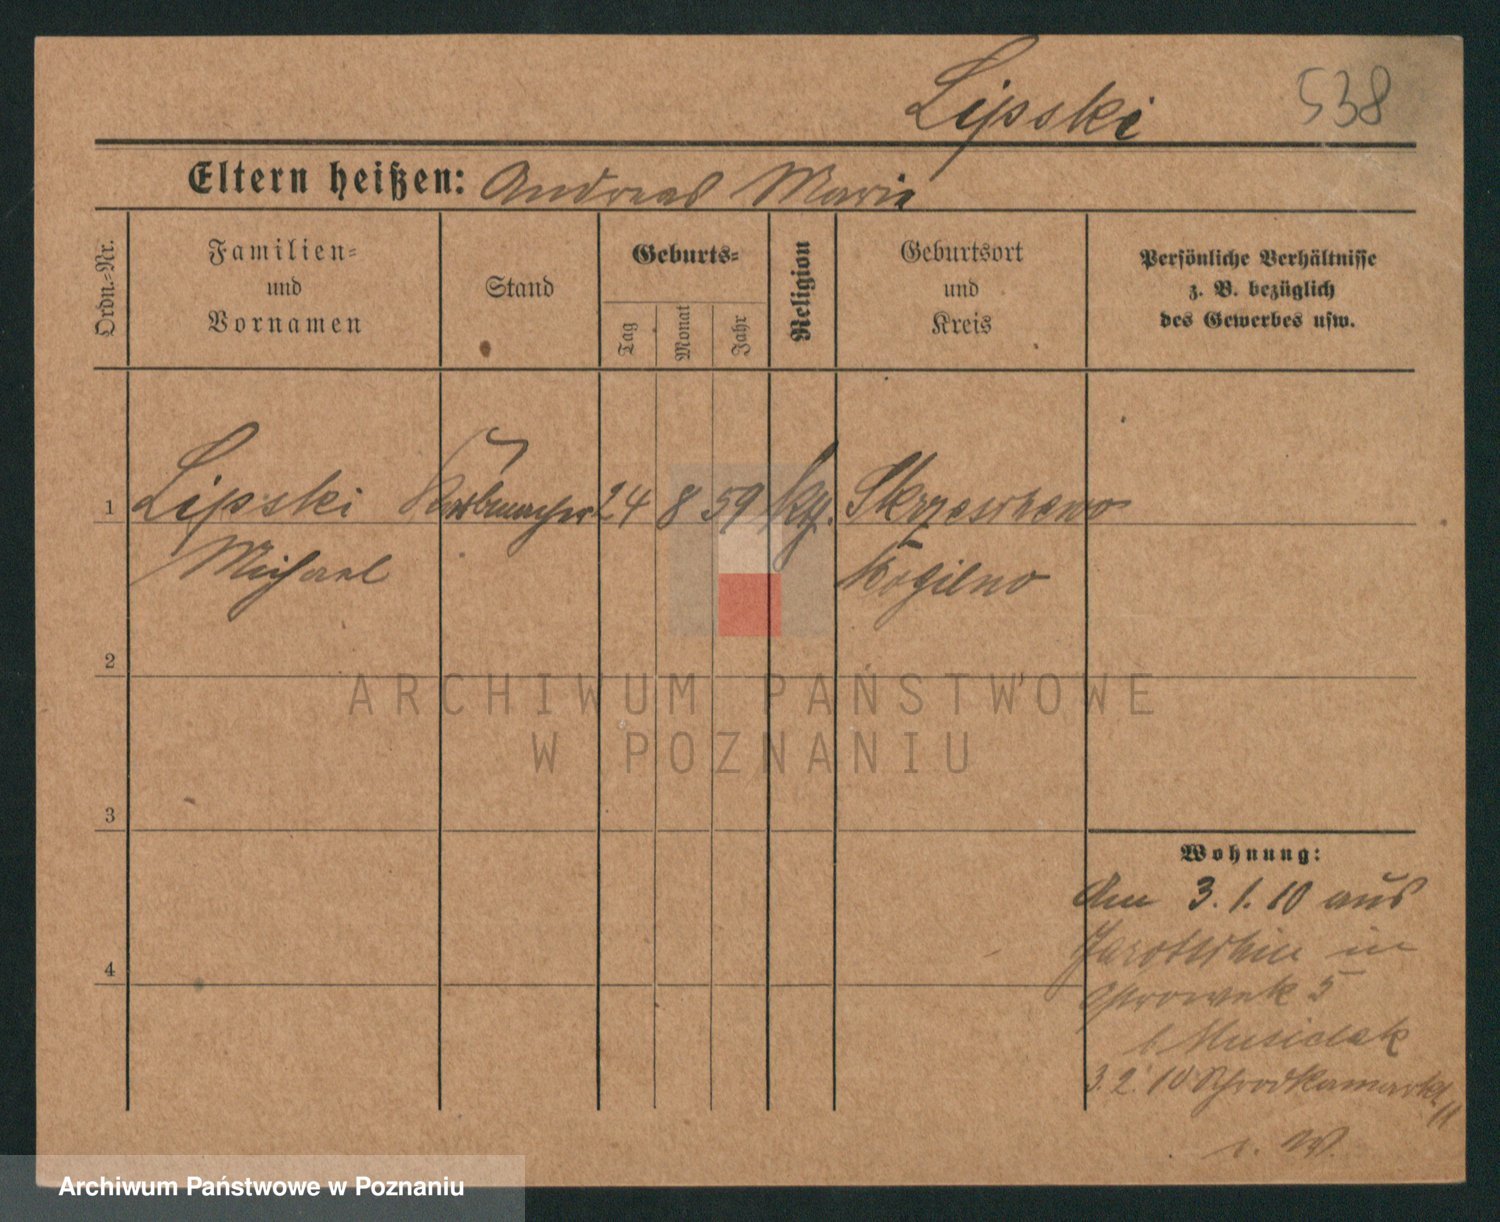 Lipski 538
Eltern heißen: Andreas Marie
Ordn.-Nr.
Familien-
und
Vornamen
Stand
Geburts-
Tag
Monat
Jahr
Religion
Geburtsort
und
Kreis
Persönliche Verhältnisse
z. B. bezüglich
des Gewerbes usw.
1 Lipski Korbmacher 24 8 59
Michael
Mogilno
2
3
4
ARCHIWUM PAŃSTWOWE
W POZNANIU
Wohnung:
Am 3. 1. 10 aus
Jarotschin in
5
b Musielak
3. 2. 10 Schrodkamarkt
11
Archiwum Państwowe w Poznaniu